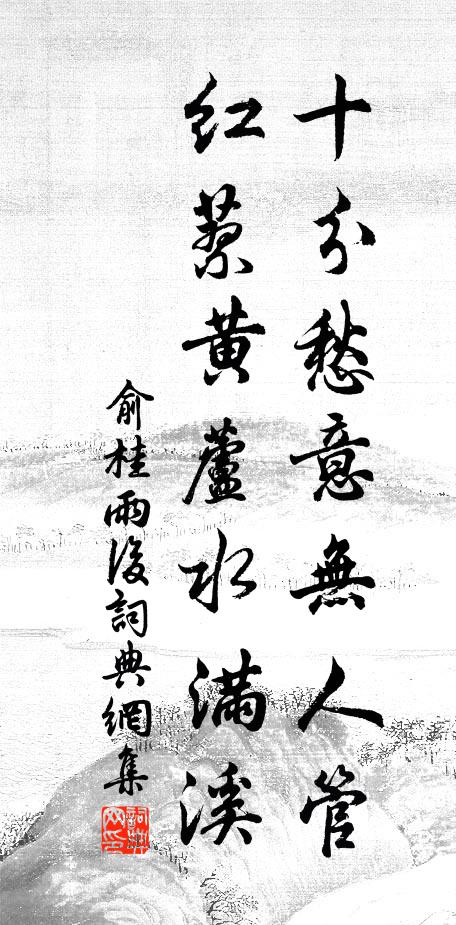 十分愁意無人管
紅蓼黃蘆水滿溪
俞桂雨後詞典網集